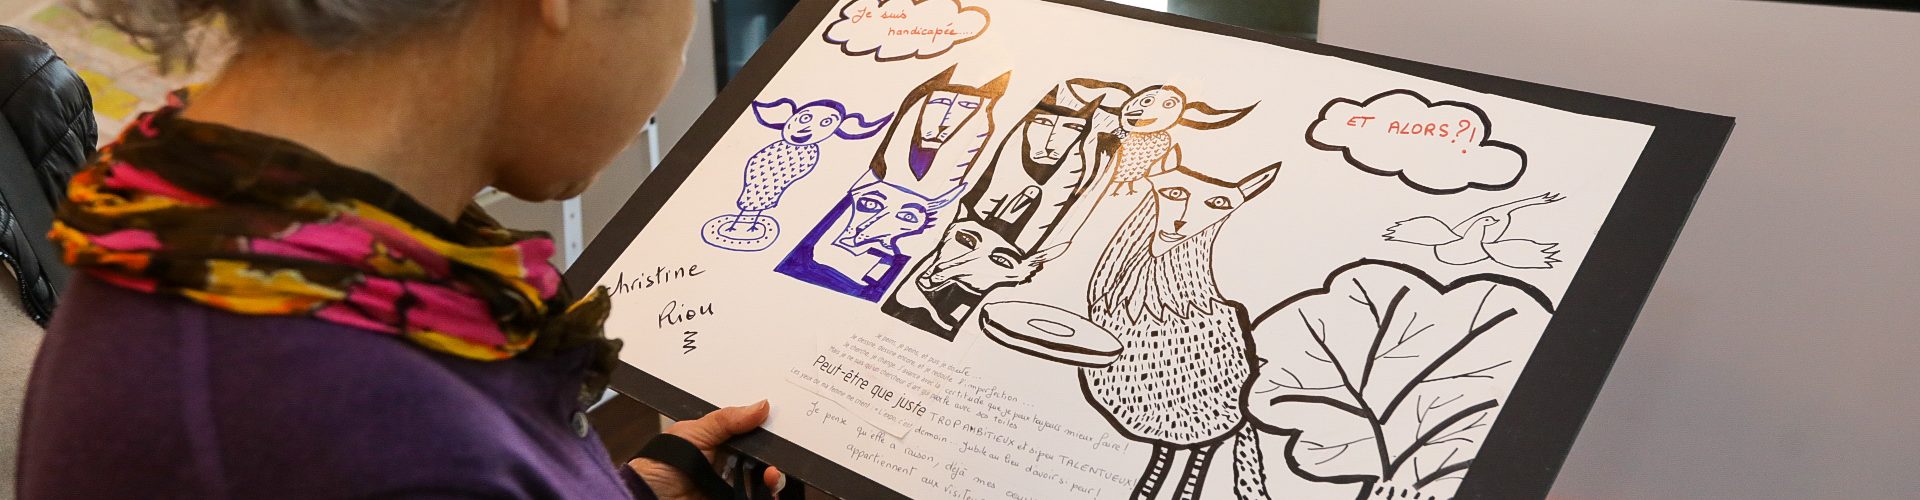 Je suis
handicapée....
ET ALORS?!
Christine
Riou
Je peins, je peins, et puis je doute...
Je dessine, dessine encore, et je redoute l'imperfection...
Je cherche, je change, j'avance avec la certitude que je peux toujours mieux faire!
Mais je ne suis qu'un chercheur d'art qui parle avec ses toiles
Peut-être que juste TROP AMBITIEUX et si peu TALENTUEUX!
demain... jubile au lieu d'avoir si peur!
Je pense qu'elle a raison, déjà mes
appartiennent
aux